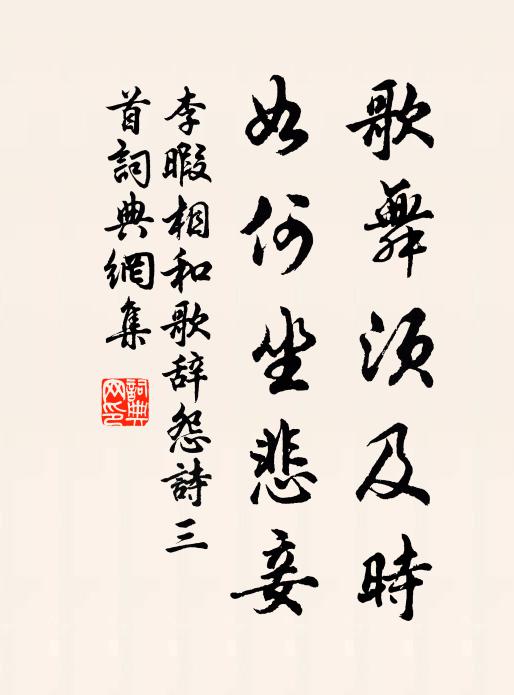 歌舞須及時
如何坐悲妾
李暇相和歌辞怨詩三
首詞典網集
詞典
网印